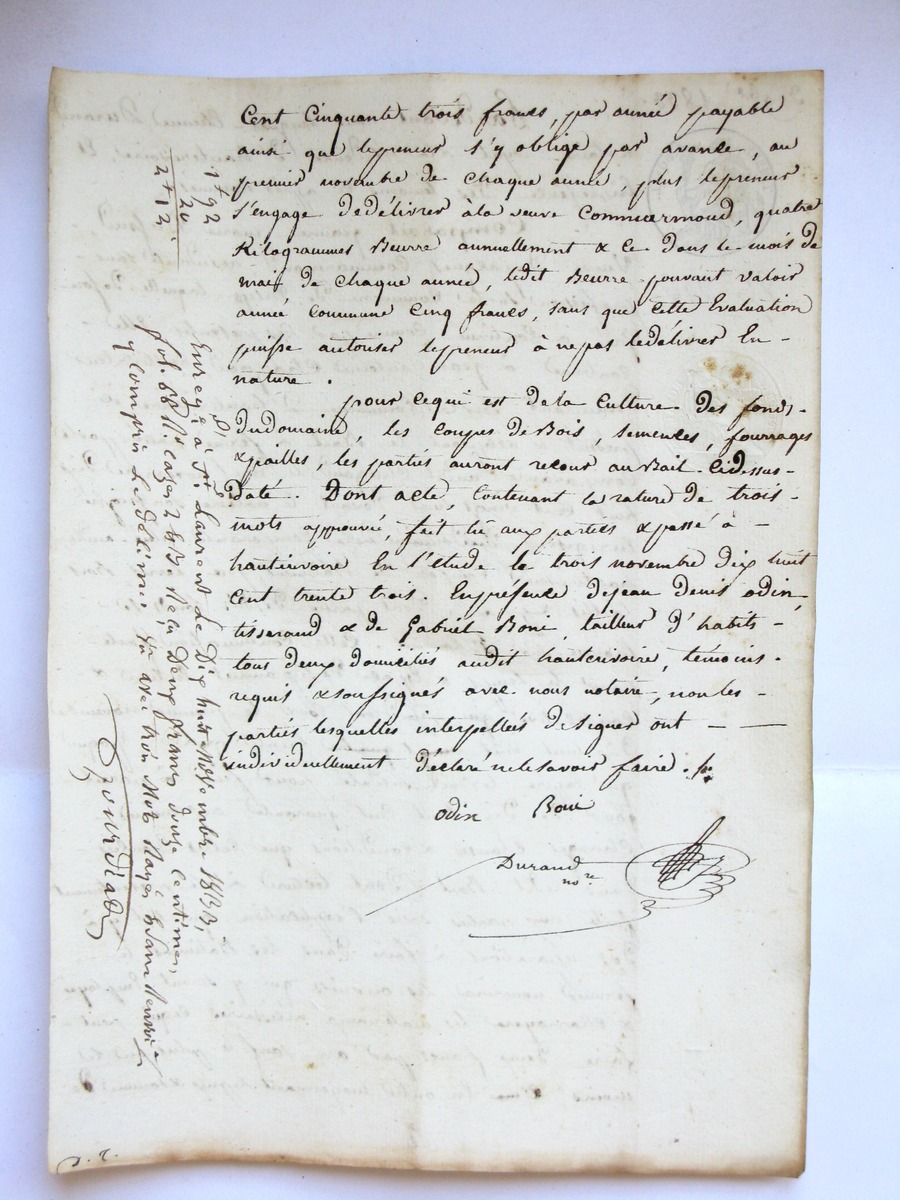 Cent Cinquante trois francs, par année payable
ainsi que lepreneur s'y oblige par avance, au
premier novembre de chaque année, plus lepreneur
s'engage dedélivrer àla veuve Commarmond, quatre
Kilogrammes Beurre annuellement & ce dans le mois de
mai de chaque année, ledit Beurre pouvant valoir
année commune Cinq francs, sans que cette Evaluation
puisse autoriser lepreneur à nepas ledélivrer En-
nature.
pour cequi est dela Culture des fonds-
dudomaine, les Coupes deBois, semences, fourrages
&pailles, les parties auront recour auBail Cidessus-
daté. Dont acte, Contenant la rature de trois-
mots approuvée, fait lu aux parties &passé à -
hauterivoire En l'étude le trois novembre dix huit
Cent trente trois. Enprésence dejean denis odin,
tisserand & de Gabriel Boni, tailleur d'habits -
tous deux domiciliés audit hauterivoire, témoins.
requis &soussignés avec nous notaire, non les-
parties lesquelles interpellées designer ont - -
individuellement déclaré nelesavoir faire.
odin Boni
Durand
nore
1+92
20
2+12
Enregé à St Laurent Le Dix huit Novembre 1833,
fol. 66 Vo. cazes 2 &3. Reçu Deux francs douze centimes,
y compris Le décime. Vu avec trois Mots Rayés